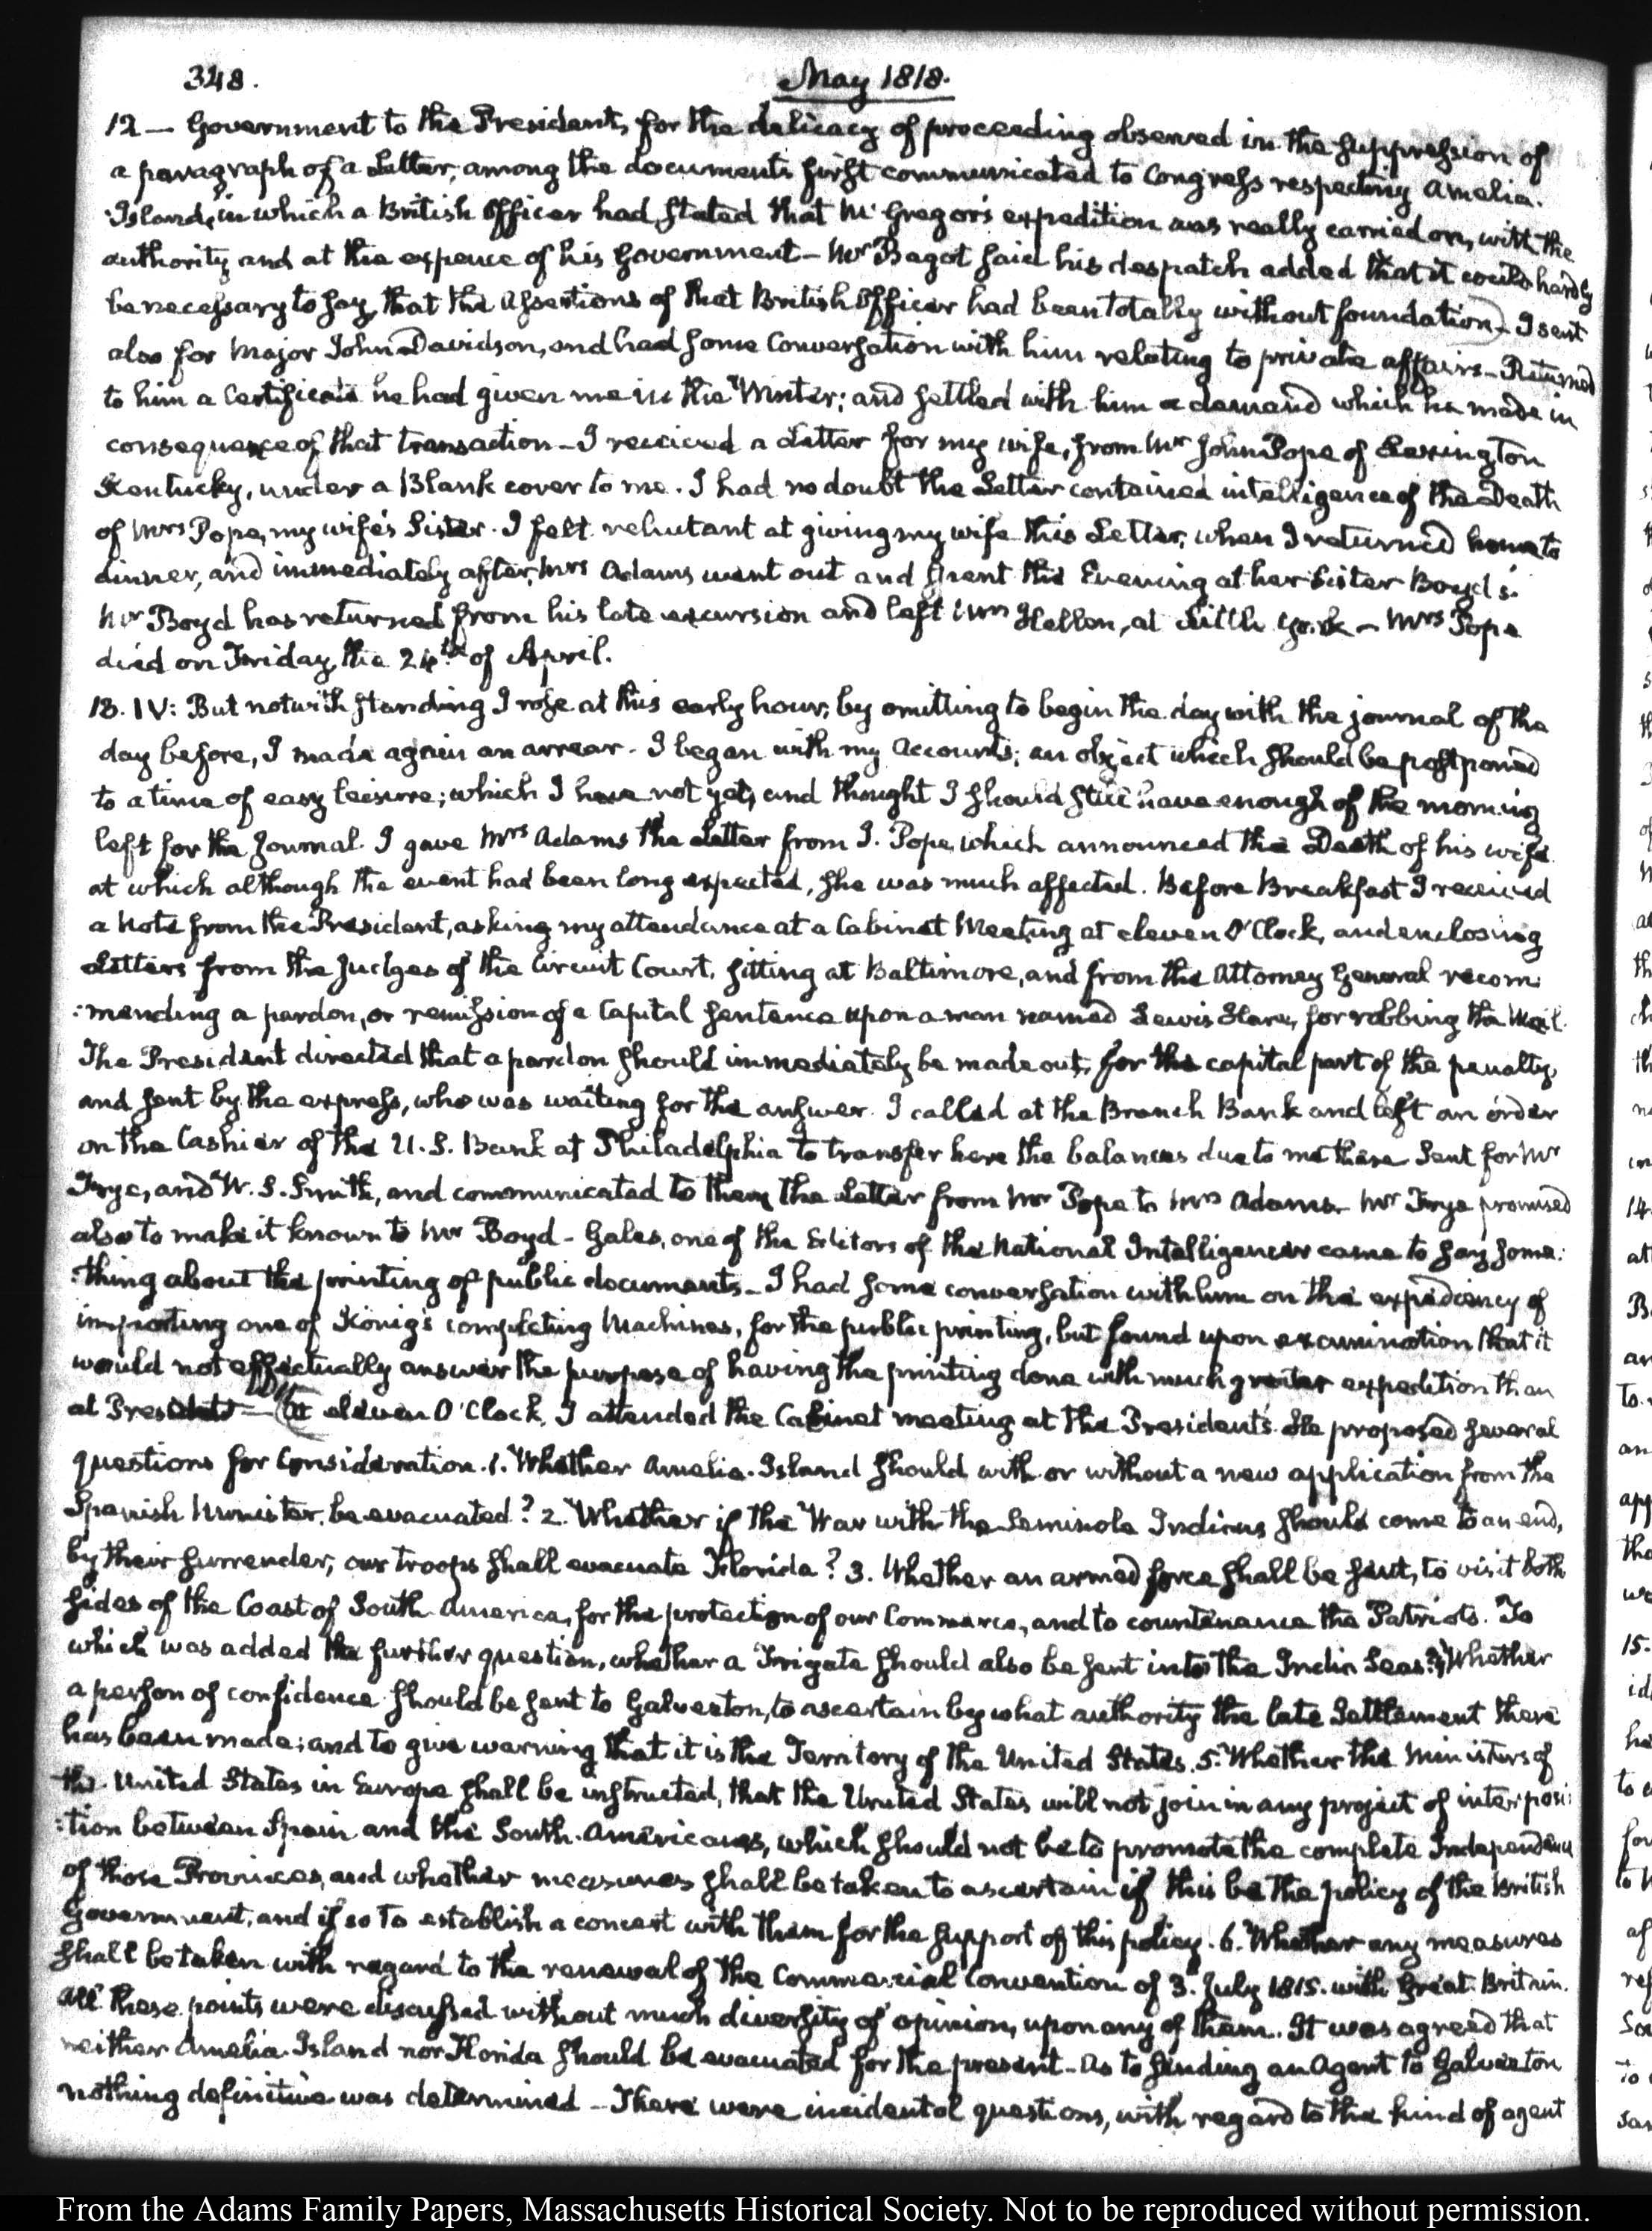 348.
May 1818.
12 — Government to the President, for the delicacy of proceeding observed in the suppression of
a paragraph of a Letter, among the documents first communicated to Congress respecting Amelia-
Island, in which a British Officer had stated that McGregor's expedition was really carried on, with the
authority and at the expence of his Government — Mr Bagot said his despatch added that it could hardly
be necessary to say, that the Assertions of that British Officer had been totally without foundation — I sent
also for Major John Davidson, and had some Conversation with him relating to private affairs — Returned
to him a Certificate he had given me in the Winter; and settled with him a demand which he made in
consequence of that transaction — I received a Letter for my wife, from Mr John Pope of Lexington
Kentucky, under a Blank cover to me. I had no doubt the Letter contained intelligence of the Death
of Mrs Pope, my wife's Sister. I felt reluctant at giving my wife this Letter, when I returned home to
dinner, and immediately after, Mrs Adams went out and spent the Evening at her Sister Boyd's.
Mr Boyd has returned from his late excursion and left Mrs Hellen, at Little York — Mrs Pope
died on Friday, the 24th of April.
13. IV: But notwithstanding I rose at this early hour, by omitting to begin the day with the journal of the
day before, I made again an arrear. I began with my Accounts; an object which should be postponed
to a time of easy leisure; which I have not yet, and thought I should still have enough of the morning
left for the Journal. I gave Mrs Adams the Letter from J. Pope, which announced the Death of his wife
at which although the event had been long expected, she was much affected. Before Breakfast I received
a Note from the President, asking my attendance at a Cabinet Meeting at eleven O'Clock, and enclosing
Letters from the Judges of the Circuit Court, sitting at Baltimore, and from the Attorney General recom:
:mending a pardon, or remission of a Capital sentence upon a man named Lewis Hare, for robbing the Mail.
The President directed that a pardon should immediately be made out, for the capital part of the penalty,
and sent by the express, who was waiting for the answer. I called at the Branch Bank and left an order
on the Cashier of the U.S. Bank at Philadelphia to transfer here the balances due to me there. Sent for Mr
Frye, and W. S. Smith, and communicated to them the Letter from Mr Pope to Mrs Adams. Mr Frye promised
also to make it known to Mr Boyd — Gales, one of the Editors of the National Intelligencer came to say some:
:thing about the printing of public documents — I had some conversation with him on the expediency of
importing one of König's completing Machines, for the public printing, but found upon examination that it
would not effectually answer the purpose of having the printing done with much greater expedition than
at Present — At eleven O'Clock, I attended the Cabinet meeting at the President's. He proposed several
questions for Consideration. 1. Whether Amelia-Island should with or without a new application from the
Spanish Minister, be evacuated? 2. Whether if the War with the Seminole Indians should come to an end,
by their surrender, our troops shall evacuate Florida? 3. Whether an armed force shall be sent, to visit both
sides of the Coast of South-America, for the protection of our Commerce, and to countenance the Patriots. To
which was added the further question, whether a Frigate should also be sent into the India Seas? 4 Whether
a person of confidence should be sent to Galveston, to ascertain by what authority the late Settlement there
has been made; and to give warning that it is the Territory of the United States. 5. Whether the Ministers of
the United States in Europe shall be instructed, that the United States will not join in any project of interposi:
:tion between Spain and the South-Americans, which should not be to promote the complete Independence
of those Provinces, and whether measures shall be taken to ascertain if this be the policy of the British
Government, and if so to establish a concert with them for the support of this policy. 6. Whether any measures
shall be taken with regard to the renewal of the Commercial Convention of 3. July 1815. with Great-Britain.
All these points were discussed without much diversity of opinion, upon any of them. It was agreed that
neither Amelia-Island nor Florida should be evacuated for the present — As to sending an Agent to Galveston
nothing definitive was determined — There were incidental questions, with regard to the kind of agent
From the Adams Family Papers, Massachusetts Historical Society. Not to be reproduced without permission.